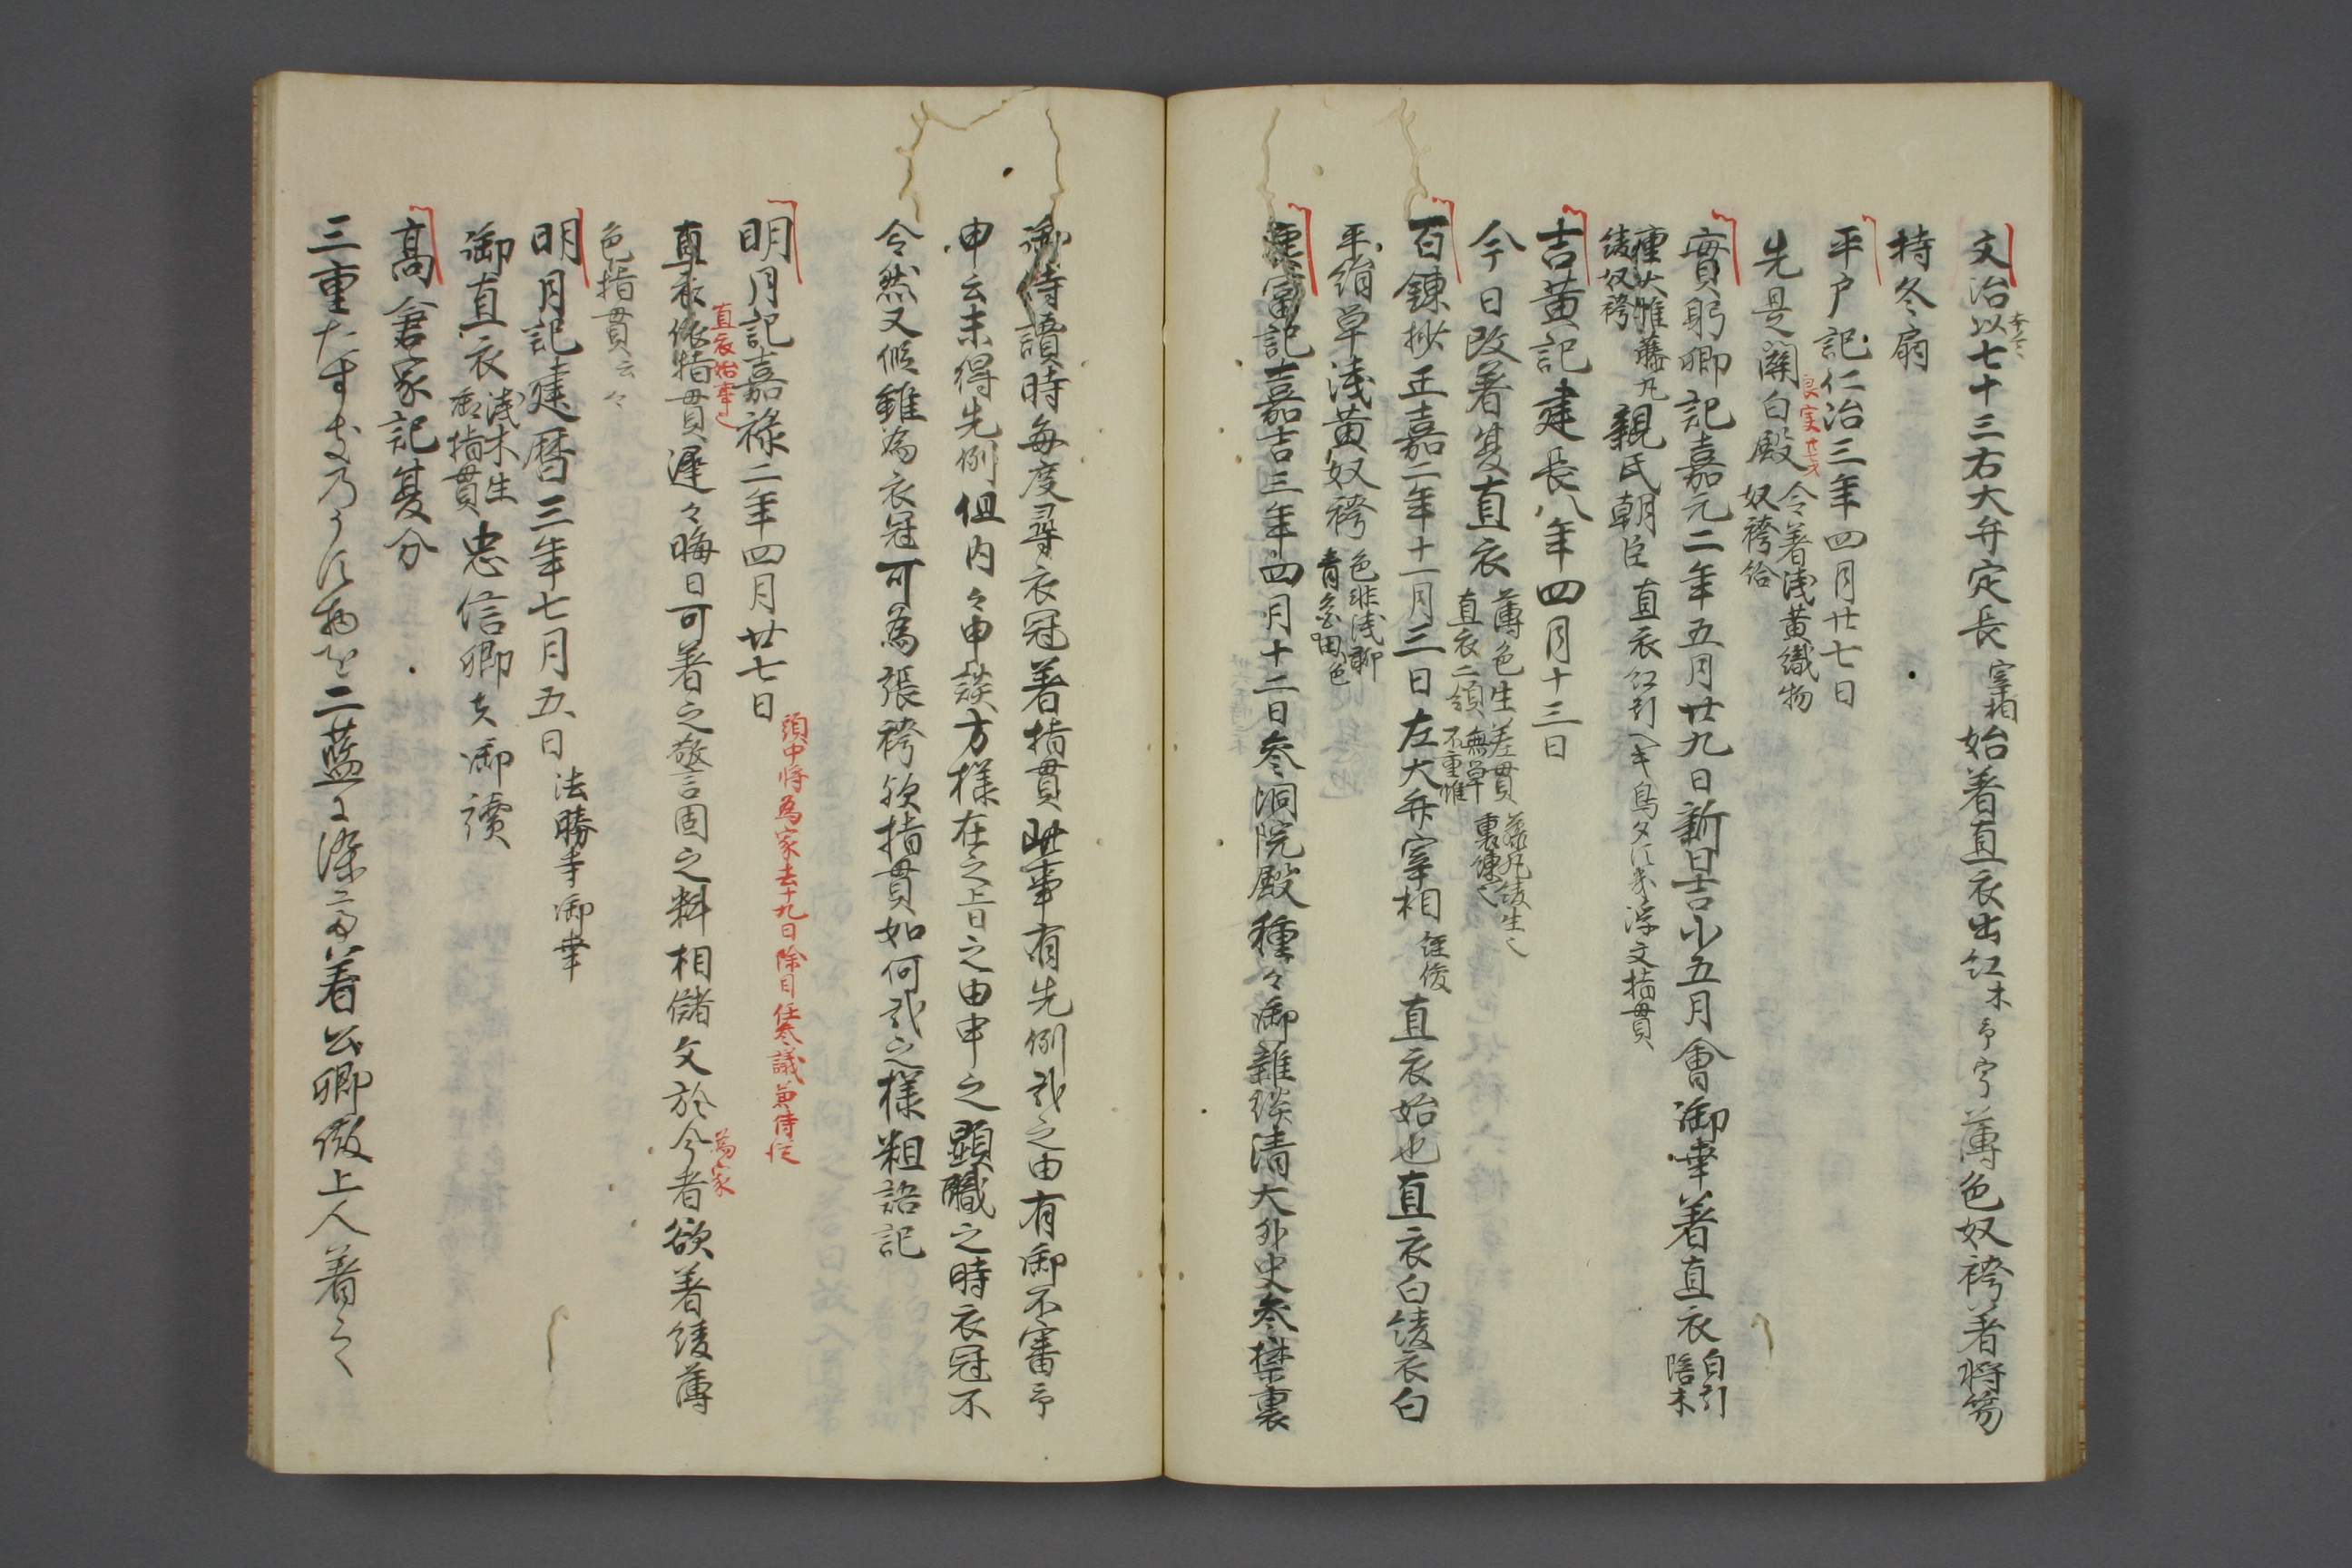 文治以七十三右大弁定長宰相始着直衣出紅木薄色奴袴着將笏
持冬扇
平戸記仁治三年四月廿七日
良実廿七才
先是関白殿令着浅黄織物奴袴給
實躬卿記嘉元二年五月廿九日新日吉小五月會御幸着直衣白引陪木
重大帷藤丸綾奴袴親氏朝臣直衣紅引ヘキ浮文指貫
吉黄記建長八年四月十三日
今日改着夏直衣薄色生差貫藤丸綾生直衣二領無単不重帷
百錬抄正嘉二年十一月三日左大弁宰相経俊直衣始也直衣白綾衣白
平絹単浅黄奴袴色非浅聊青
康富記嘉吉三年四月十二日参洞院殿種々御雑談清大外史参禁裏
御侍讀時毎度尋衣冠着指貫此事有先例哉之由有御不審予
申云未得先例但内々申談方様在之旨之由申之顕職之時衣冠不
令然又仮雖為衣冠可為張袴欤指貫如何哉之様粗語記
明月記嘉禄二年四月廿七日
頭中将為家去十九日除目任参議兼侍従
直衣始事
直衣依指貫遅々晦日可着之警固之料相儲文於今者欲着綾薄
為家
色指貫云々
明月記建暦三年七月五日法勝寺御幸
御直衣浅木生御指貫忠信卿夫御讀
高倉家記夏分
三重たすきのうす物を二藍に染着公卿殿上人着之